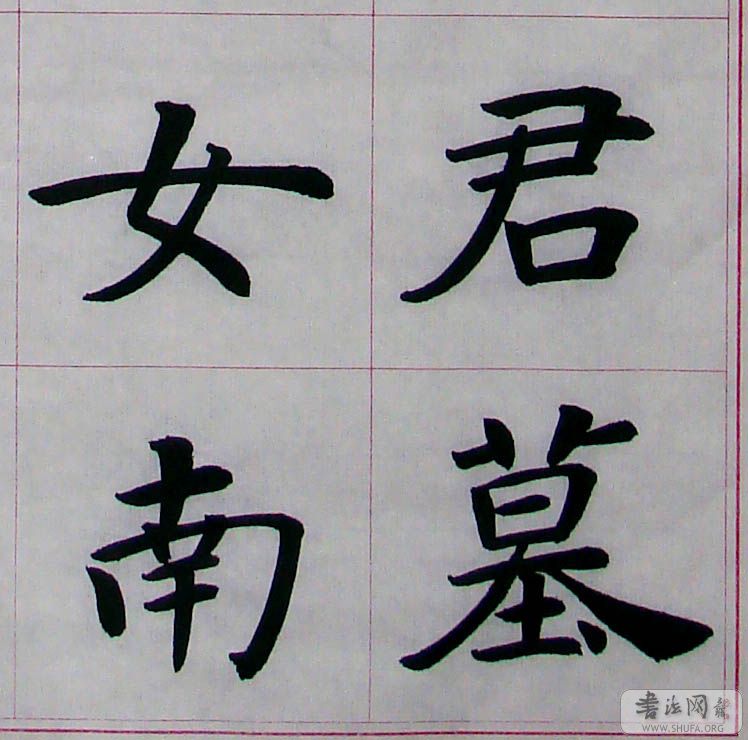 君墓
女南
书法网
WWW.SHUFA.ORG